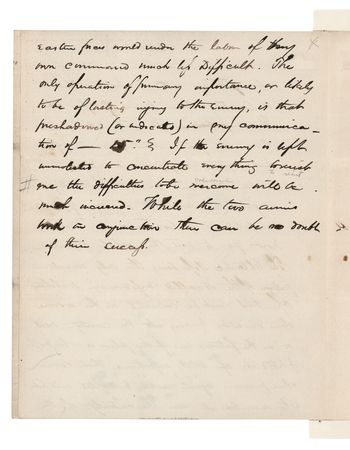 Eastern forces would render the labor of thing
own command much less difficult. The
only operation of primary importance, or likely
to be of lasting injury to the Enemy, is that
foreshadowed (or indicated) in my communica-
tion of — 15" & If the Enemy is left
unmolested to concentrate everything to resist
me the difficulties to be overcome will be
much increased. While the two armies
work in conjunction there can be no doubt
of their success.